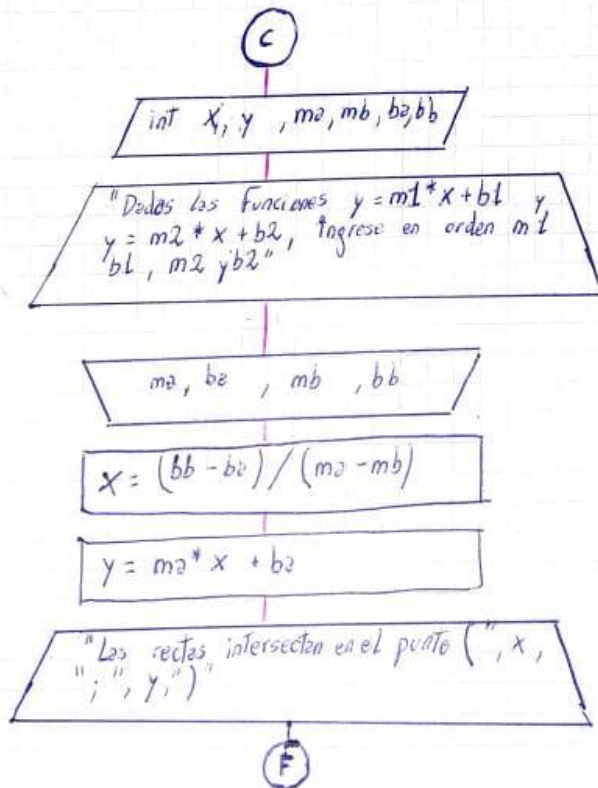 C
int x, y , ma, mb, ba, bb
"Dadas las funciones y = m1*x + b1 y
y = m2 * x + b2, Ingrese en orden m1
b1 , m2 y b2"
ma, ba , mb , bb
x = (bb - ba) / (ma - mb)
y = ma* x + ba
"Las rectas intersectan en el punto (", x,
";", y, ")"
F